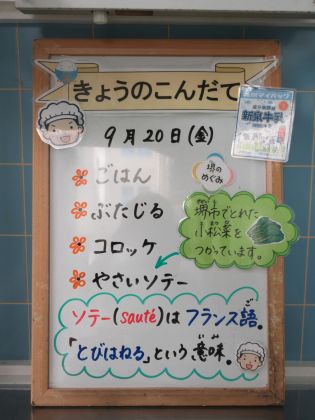 きょうのこんだて
9月20日(金)
ごはん
ぶたじる
コロッケ
やさいソテー
堺の
めぐみ
堺市でとれた
小松菜を
つかっています。
ソテー(sauté)は フランス語。
「とびはねる」という意味。